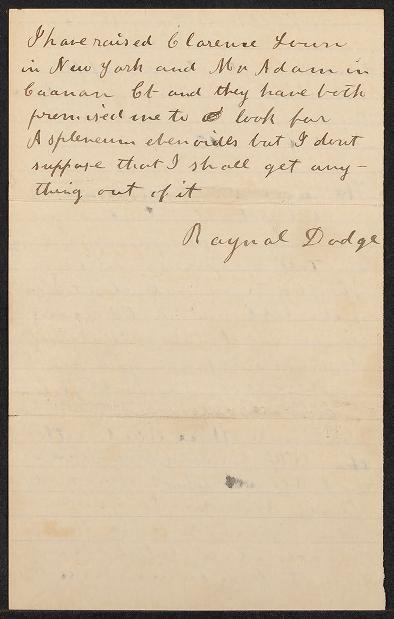 I have raised Clarence Lown
in New York and Mr Adam in
Caanan Ct and they have both
promised me to look for
Aspleneum ebenoides but I dont
suppose that I shall get any-
thing out of it
Raynal Dodge